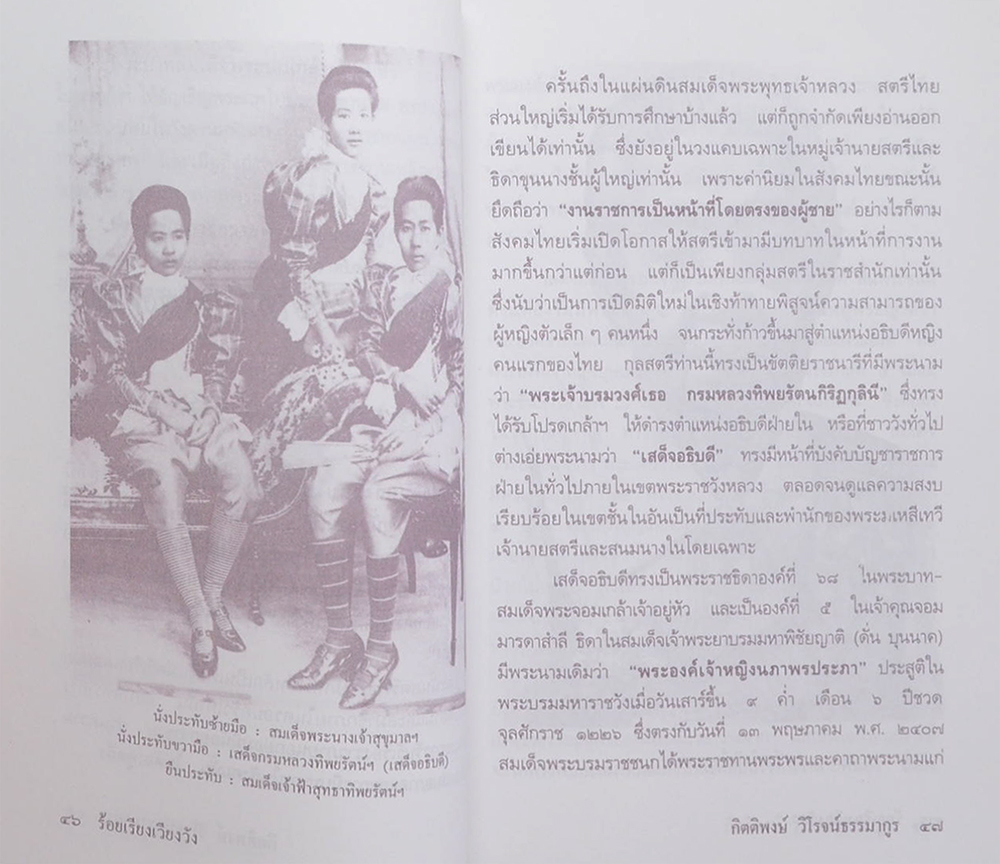 นั่งประทับซ้ายมือ : สมเด็จพระนางเจ้าสุขุมาลฯ
นั่งประทับขวามือ : เสด็จกรมหลวงทิพยรัตน์ฯ (เสด็จอธิบดี)
ยืนประทับ : สมเด็จเจ้าฟ้าสุทธาทิพยรัตน์ฯ
๔๖ ร้อยเรียงเวียงวัง
ครั้นถึงในแผ่นดินสมเด็จพระพุทธเจ้าหลวง สตรีไทย
ส่วนใหญ่เริ่มได้รับการศึกษาบ้างแล้ว แต่ก็ถูกจำกัดเพียงอ่านออก
เขียนได้เท่านั้น ซึ่งยังอยู่ในวงแคบเฉพาะในหมู่เจ้านายสตรีและ
ธิดาขุนนางชั้นผู้ใหญ่เท่านั้น เพราะค่านิยมในสังคมไทยขณะนั้น
ยึดถือว่า “งานราชการเป็นหน้าที่โดยตรงของผู้ชาย” อย่างไรก็ตาม
สังคมไทยเริ่มเปิดโอกาสให้สตรีเข้ามามีบทบาทในหน้าที่การงาน
มากขึ้นกว่าแต่ก่อน แต่ก็เป็นเพียงกลุ่มสตรีในราชสำนักเท่านั้น
ซึ่งนับว่าเป็นการเปิดมิติใหม่ในเชิงท้าทายพิสูจน์ความสามารถของ
ผู้หญิงตัวเล็ก ๆ คนหนึ่ง จนกระทั่งก้าวขึ้นมาสู่ตำแหน่งอธิบดีหญิง
คนแรกของไทย กุลสตรีท่านนี้ทรงเป็นขัตติยราชนารีที่มีพระนาม
ว่า “พระเจ้าบรมวงศ์เธอ กรมหลวงทิพยรัตนกิริฏกุลินี” ซึ่งทรง
ได้รับโปรดเกล้าฯ ให้ดำรงตำแหน่งอธิบดีฝ่ายใน หรือที่ชาววังทั่วไป
ต่างเอ่ยพระนามว่า “เสด็จอธิบดี” ทรงมีหน้าที่บังคับบัญชาราชการ
ฝ่ายในทั่วไปภายในเขตพระราชวังหลวง ตลอดจนดูแลความสงบ
เรียบร้อยในเขตชั้นในอันเป็นที่ประทับและพำนักของพระมเหสีเทวี
เจ้านายสตรีและสนมนางในโดยเฉพาะ
เสด็จอธิบดีทรงเป็นพระราชธิดาองค์ที่ ๖๘ ในพระบาท-
สมเด็จพระจอมเกล้าเจ้าอยู่หัว และเป็นองค์ที่ ๕ ในเจ้าคุณจอม
มารดาสำลี ธิดาในสมเด็จเจ้าพระยาบรมมหาพิชัยญาติ (ดั่น บุนนาค)
มีพระนามเดิมว่า “พระองค์เจ้าหญิงนภาพรประภา” ประสูติใน
พระบรมมหาราชวังเมื่อวันเสาร์ขึ้น ๙ ค่ำ เดือน ๖ ปีชวด
จุลศักราช ๑๒๒๖ ซึ่งตรงกับวันที่ ๑๓ พฤษภาคม พ.ศ. ๒๔๐๗
สมเด็จพระบรมราชชนกได้พระราชทานพระพรและคาถาพระนามแก่
กิตติพงษ์ วิโรจน์ธรรมากูร ๔๗